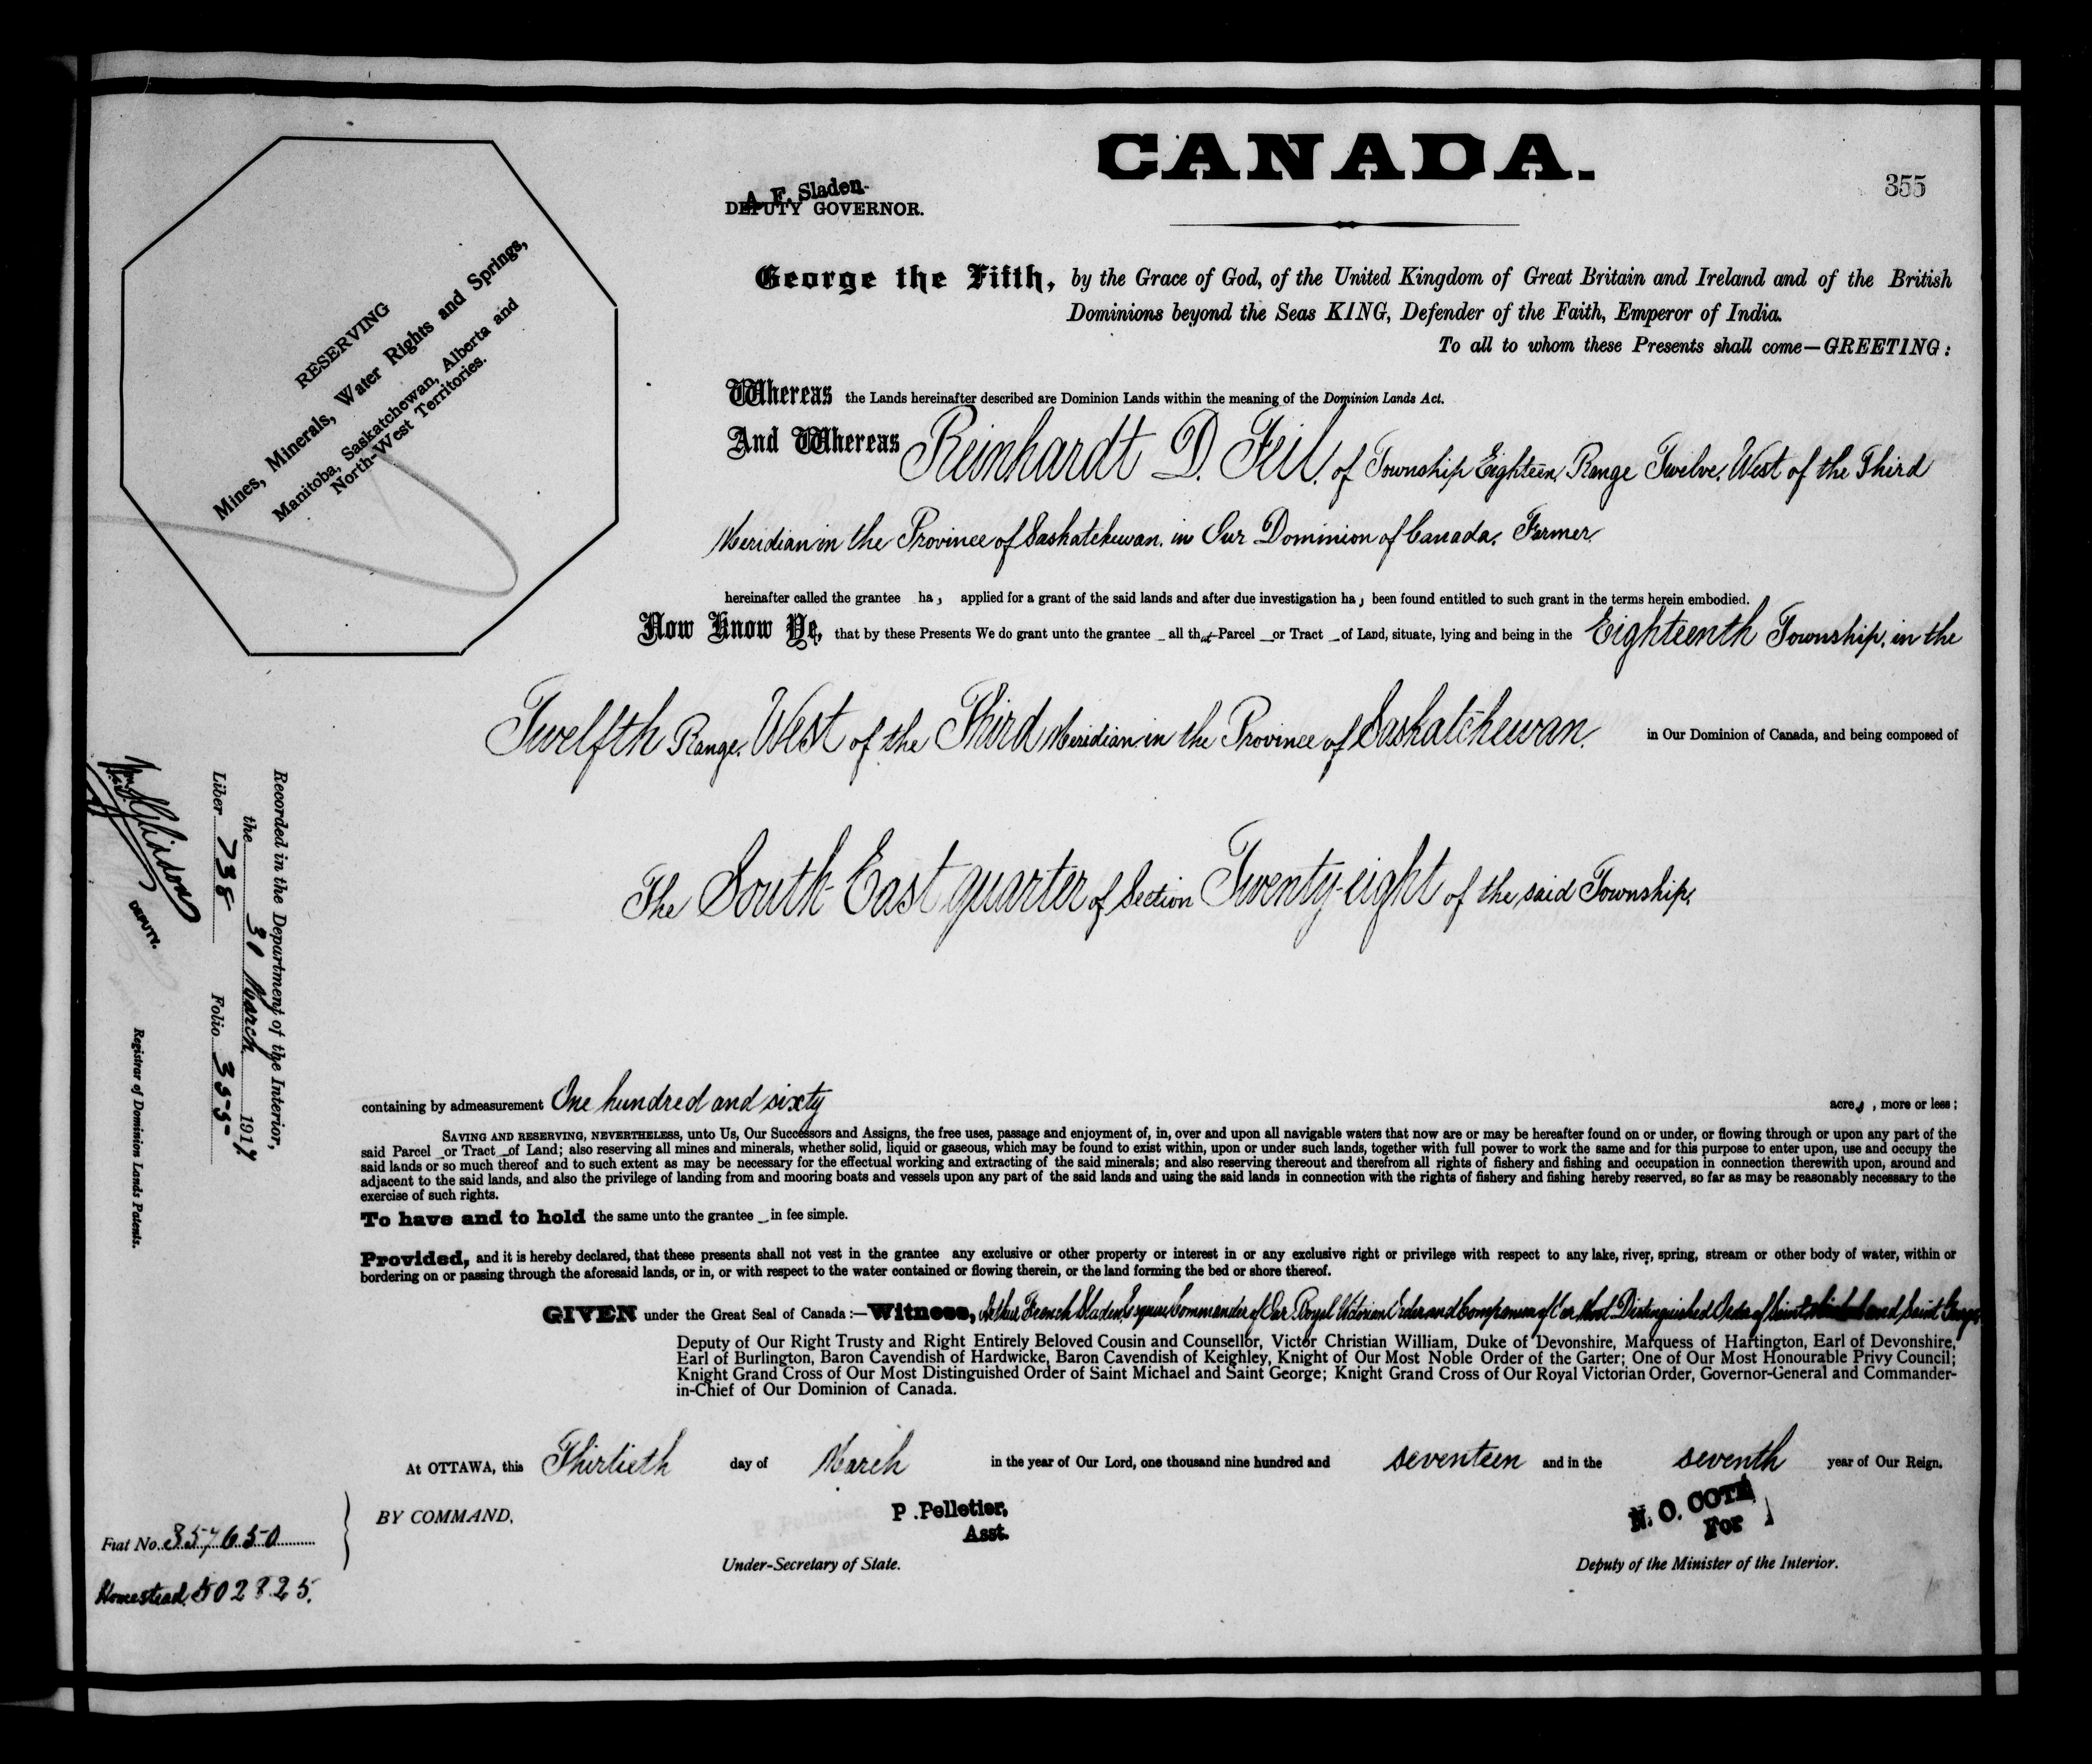 CANADA.
355
A. F. Sladen.
DEPUTY GOVERNOR.
RESERVING
Mines, Minerals, Water Rights and Springs,
Manitoba, Saskatchewan, Alberta and
North-West Territories.
George the Fifth, by the Grace of God, of the United Kingdom of Great Britain and Ireland and of the British
Dominions beyond the Seas KING, Defender of the Faith, Emperor of India.
To all to whom these Presents shall come—GREETING:
Whereas the Lands hereinafter described are Dominion Lands within the meaning of the Dominion Lands Act.
And Whereas Reinhardt D. Feil, of Township Eighteen, Range Twelve, West of the Third
Meridian in the Province of Saskatchewan, in Our Dominion of Canada, Farmer,
hereinafter called the grantee has applied for a grant of the said lands and after due investigation has been found entitled to such grant in the terms herein embodied.
Now Know Ye, that by these Presents We do grant unto the grantee _ all that Parcel _ or Tract _ of Land, situate, lying and being in the Eighteenth Township, in the
Twelfth Range, West of the Third Meridian in the Province of Saskatchewan, in Our Dominion of Canada, and being composed of
The South East quarter of Section Twenty-eight of the said Township,
containing by admeasurement One hundred and sixty acres, more or less;
SAVING AND RESERVING, NEVERTHELESS, unto Us, Our Successors and Assigns, the free uses, passage and enjoyment of, in, over and upon all navigable waters that now are or may be hereafter found on or under, or flowing through or upon any part of the
said Parcel _ or Tract _ of Land; also reserving all mines and minerals, whether solid, liquid or gaseous, which may be found to exist within, upon or under such lands, together with full power to work the same and for this purpose to enter upon, use and occupy the
said lands or so much thereof and to such extent as may be necessary for the effectual working and extracting of the said minerals; and also reserving thereout and therefrom all rights of fishery and fishing and occupation in connection therewith upon, around and
adjacent to the said lands, and also the privilege of landing from and mooring boats and vessels upon any part of the said lands and using the said lands in connection with the rights of fishery and fishing hereby reserved, so far as may be reasonably necessary to the
exercise of such rights.
To have and to hold the same unto the grantee _ in fee simple.
Provided, and it is hereby declared, that these presents shall not vest in the grantee any exclusive or other property or interest in or any exclusive right or privilege with respect to any lake, river, spring, stream or other body of water, within or
bordering on or passing through the aforesaid lands, or in, or with respect to the water contained or flowing therein, or the land forming the bed or shore thereof.
GIVEN under the Great Seal of Canada:—Witness, Arthur French Sladen, Esquire Commander of Our Royal Victorian Order and Companion of Our Most Distinguished Order of Saint Michael and Saint George
Deputy of Our Right Trusty and Right Entirely Beloved Cousin and Counsellor, Victor Christian William, Duke of Devonshire, Marquess of Hartington, Earl of Devonshire,
Earl of Burlington, Baron Cavendish of Hardwicke, Baron Cavendish of Keighley, Knight of Our Most Noble Order of the Garter; One of Our Most Honourable Privy Council;
Knight Grand Cross of Our Most Distinguished Order of Saint Michael and Saint George; Knight Grand Cross of Our Royal Victorian Order, Governor-General and Commander-
in-Chief of Our Dominion of Canada.
At OTTAWA, this Thirtieth day of March in the year of Our Lord, one thousand nine hundred and seventeen and in the seventh year of Our Reign.
BY COMMAND,
P. Pelletier,
Asst.
Under-Secretary of State.
N. O. COTE
For
Deputy of the Minister of the Interior.
Fiat No. 357650
Homestead 502825.
Recorded in the Department of the Interior,
the 31 March 1917
Liber 738 Folio 355
DEPUTY.
Registrar of Dominion Lands Patents.